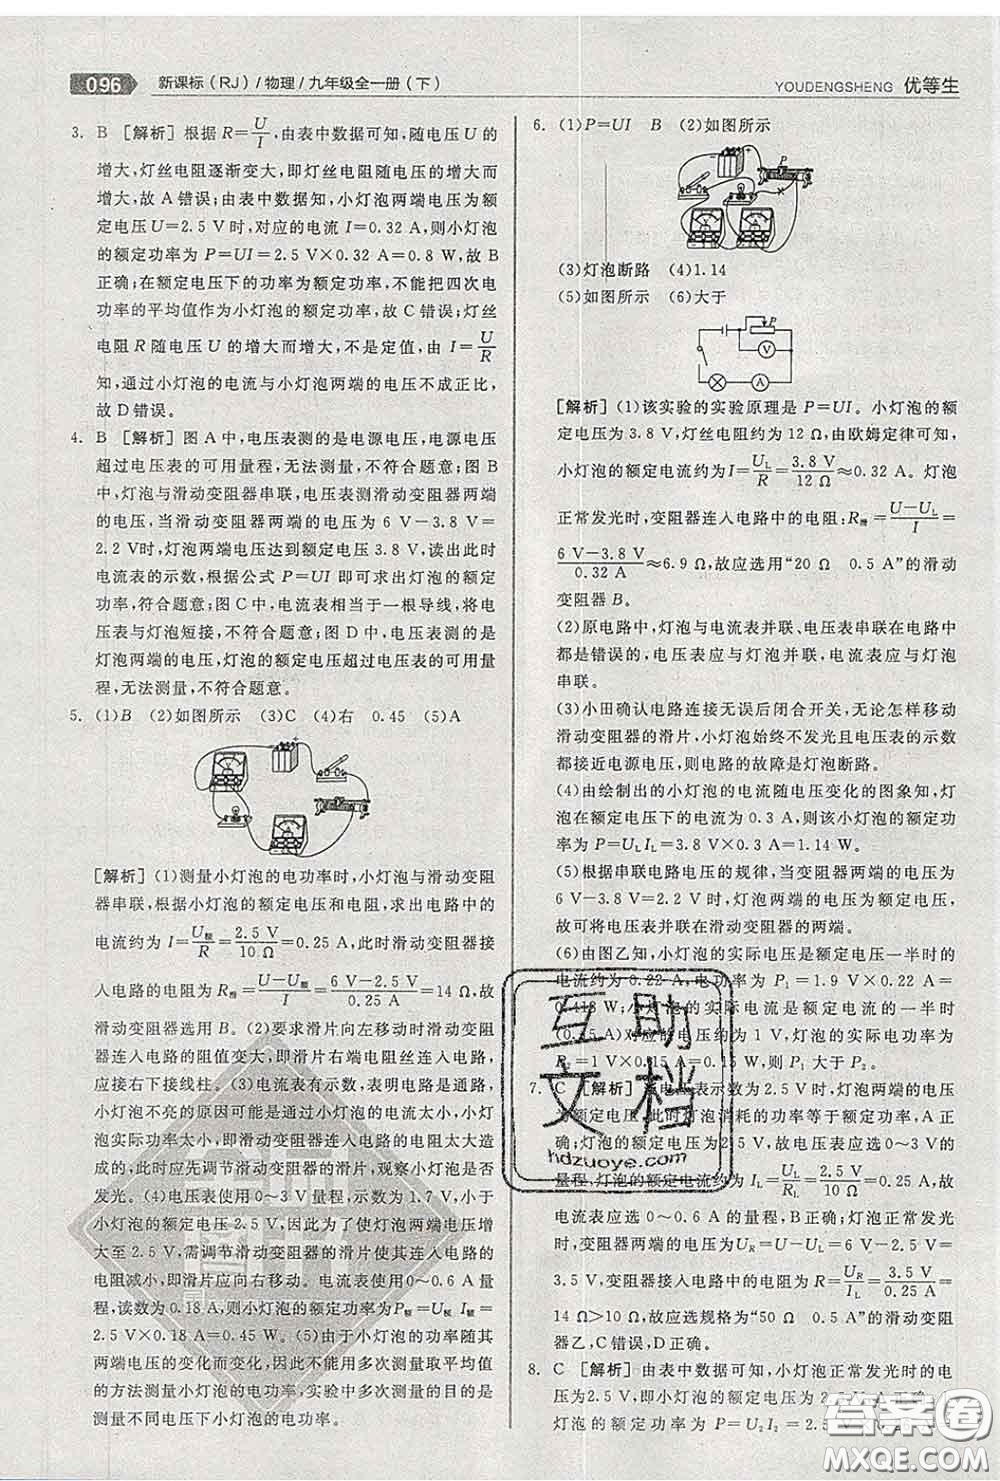 096 新课标（RJ）/物理/九年级全一册（下）
YOUDENGSHENG 优等生
3. B ［解析］根据R=U/I,由表中数据可知,随电压U的
增大,灯丝电阻逐渐变大,即灯丝电阻随电压的增大而
增大,故A错误;由表中数据知,小灯泡两端电压为额
定电压U=2.5 V时,对应的电流I=0.32 A,则小灯泡
的额定功率为P=UI=2.5 V×0.32 A=0.8 W,故B
正确;在额定电压下的功率为额定功率,不能把四次电
功率的平均值作为小灯泡的额定功率,故C错误;灯丝
电阻R随电压U的增大而增大,不是定值,由I=U/R
知,通过小灯泡的电流与小灯泡两端的电压不成正比,
故D错误。
4. B ［解析］图A中,电压表测的是电源电压,电源电压
超过电压表的可用量程,无法测量,不符合题意;图B
中,灯泡与滑动变阻器串联,电压表测滑动变阻器两端
的电压,当滑动变阻器两端的电压为6 V－3.8 V=
2.2 V时,灯泡两端电压达到额定电压3.8 V,读出此时
电流表的示数,根据公式P=UI即可求出灯泡的额定
功率,符合题意;图C中,电流表相当于一根导线,将电
压表与灯泡短接,不符合题意;图D中,电压表测的是
灯泡两端的电压,灯泡的额定电压超过电压表的量
程,无法测量,不符合题意。
5. (1)B (2)如图所示 (3)C (4)右 0.45 (5)A
［解析］(1)测量小灯泡的电功率时,小灯泡与滑动变阻
器串联,根据小灯泡的额定电压和电阻,求出电路中的
电流约为I=U额/R=2.5 V/10 Ω=0.25 A,此时滑动变阻器接
入电路的电阻为R滑=U－U额/I=6 V－2.5 V/0.25 A=14 Ω,故
滑动变阻器选用B。(2)要求滑片向左移动时滑动变阻
器连入电路的阻值变大,故滑片右端电阻丝连入电路,
应接右下接线柱。(3)电流表有示数,表明电路是通路,
小灯泡不亮的原因可能是电路中的电流太小,小灯泡
实际功率太小,即滑动变阻器连入电路的电阻太大造
成的,此时应先调节滑动变阻器的滑片,观察小灯泡是否
发光。(4)电压表使用0～3 V量程,示数为1.7 V,小于
小灯泡的额定电压2.5 V,为了使小灯泡两端电压增
大至2.5 V,需调节滑动变阻器的滑片使连入电路的
电阻减小,滑片应向右移动。电流表使用0～0.6 A量
程,读数为0.18 A,小灯泡的额定功率为P额=U额 I额=
2.5 V×0.18 A=0.45 W。(5)由于小灯泡的功率随其
两端电压的变化而变化,因此不能采用多次测量取平均值
的方法测量小灯泡的电功率,实验中多次测量的目的是
测量不同电压下小灯泡的电功率。
6. (1)P=UI B (2)如图所示
(3)灯泡断路 (4)1.14
(5)如图所示 (6)大于
P
V
A
［解析］(1)该实验的实验原理是P=UI。小灯泡的额
定电压为3.8 V,灯丝电阻约为12 Ω,由欧姆定律可知,
小灯泡的额定电流约为I=UL/R=3.8 V/12 Ω≈0.32 A。灯泡
正常发光时,变阻器连入电路中的电阻:R滑=U－UL/I=
6 V－3.8 V/0.32 A≈6.9 Ω。故应选用“20 Ω 0.5 A”的滑动
变阻器B。
(2)原电路中,灯泡与电流表并联、电压表串联在电路中
都是错误的,电压表应与灯泡并联,电流表应与灯泡
串联。
(3)小田确认电路连接无误后闭合开关,无论怎样移动
滑动变阻器的滑片,小灯泡始终不发光且电压表的示数
都接近电源电压,则电路的故障是灯泡断路。
(4)由绘制出的小灯泡的电流随电压变化的图象知,灯
泡在额定电压下的电流为0.3 A,则该小灯泡的额定功
率为P=ULIL=3.8 V×0.3 A=1.14 W。
(5)根据串联电路电压的规律,当变阻器的电压为
6 V－3.8 V=2.2 V时,灯泡的电压为额定电压,
故可将电压表并联在滑动变阻器的两端。
(6)由图乙知,小灯泡的实际电压是额定电压一半时的
电流约为0.22 A,电功率约为P1=1.9 V×0.22 A=
0.418 W;小灯泡的实际电流是额定电流的一半时
(0.15 A)对应的电压约为1 V,灯泡的实际电功率为
P2=1 V×0.15 A=0.15 W,所以P1大于P2。
7. C ［解析］电压表示数为2.5 V时,灯泡两端的电压
为额定电压,此时灯泡消耗的功率等于额定功率,A正
确;灯泡的额定电压为2.5 V,故电压表应选0～3 V的
量程,灯泡的额定电流约为IL=UL/RL=2.5 V/10 Ω=0.25 A,故
电流表应选0～0.6 A的量程,B正确;灯泡正常发光时,
变阻器两端的电压为UR=U－UL=6 V－2.5 V=
3.5 V,变阻器连入电路中的电阻为R=UR/IL=3.5 V/0.25 A=
14 Ω>10 Ω,故应选规格为“50 Ω 0.5 A”的滑动变阻
器乙,C错误,D正确。
8. C ［解析］由表中数据可知,小灯泡正常发光时的电
压为2.50 V,即小灯泡的额定电压为2.5 V,A错误;
灯泡的额定功率为P=U2I2=
互助
文档
hdzuoye.com
答案圈
MXQE.COM